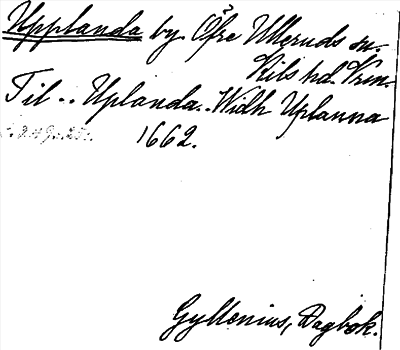 Upplanda by Öfre Ulleruds sn.
Kils hd. Vrm.
Til .. Uplanda. Widh Uplanna
1662.
Gyllenius, Dagbok.